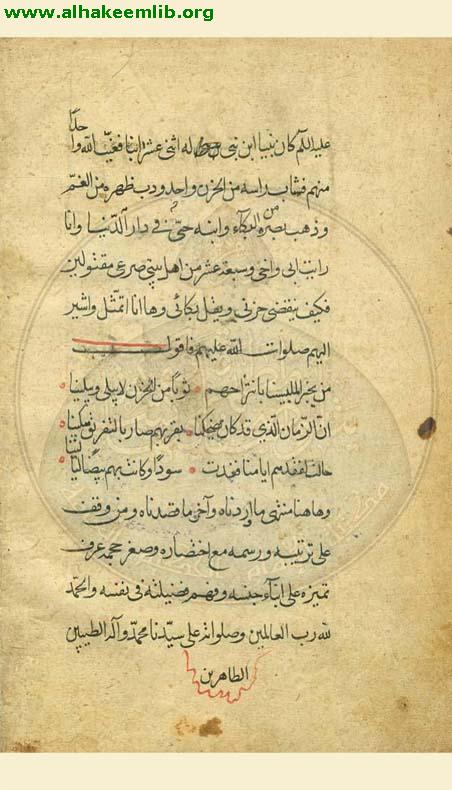 www.alhakeemlib.org
عليه السلم كان نبيا ابن نبي له اثنى عشر ابنا فغيب الله واحدًا
منهم فشاب راسه من الحزن واحدودب ظهره من الغم
وذهب بصره من البكآء وابنه حيّ في دار الدنيا وانا
رايت ابي واخي وسبعة عشر من اهل بيتي صرعى مقتولين
فكيف ينقضي حزني ويقل بكائي وها انا اتمثل واشير
اليهم صلوات الله عليهم فاقول
من مخبر الملبسينا بانتزاحهم ثوبًا من الحزن لا يبلى ويبلينا
انّ الزّمان الّذي قد كان يضحكنا بقربهم صار بالتفريق يبكينا
حالت لفقدهم ايامنا فغدت سودًا وكانت بهم بيضًا ليالينا
وهاهنا منتهى ما اردناه وآخر ما قصدناه ومن وقف
على ترتيبه ورسمه مع اختصاره وصغر حجمه عرف
تميزه على ابنآء جنسه وفهم فضيلته في نفسه والحمد
لله رب العالمين وصلواته على سيّدنا محمّد وآله الطيبين
الطاهرين